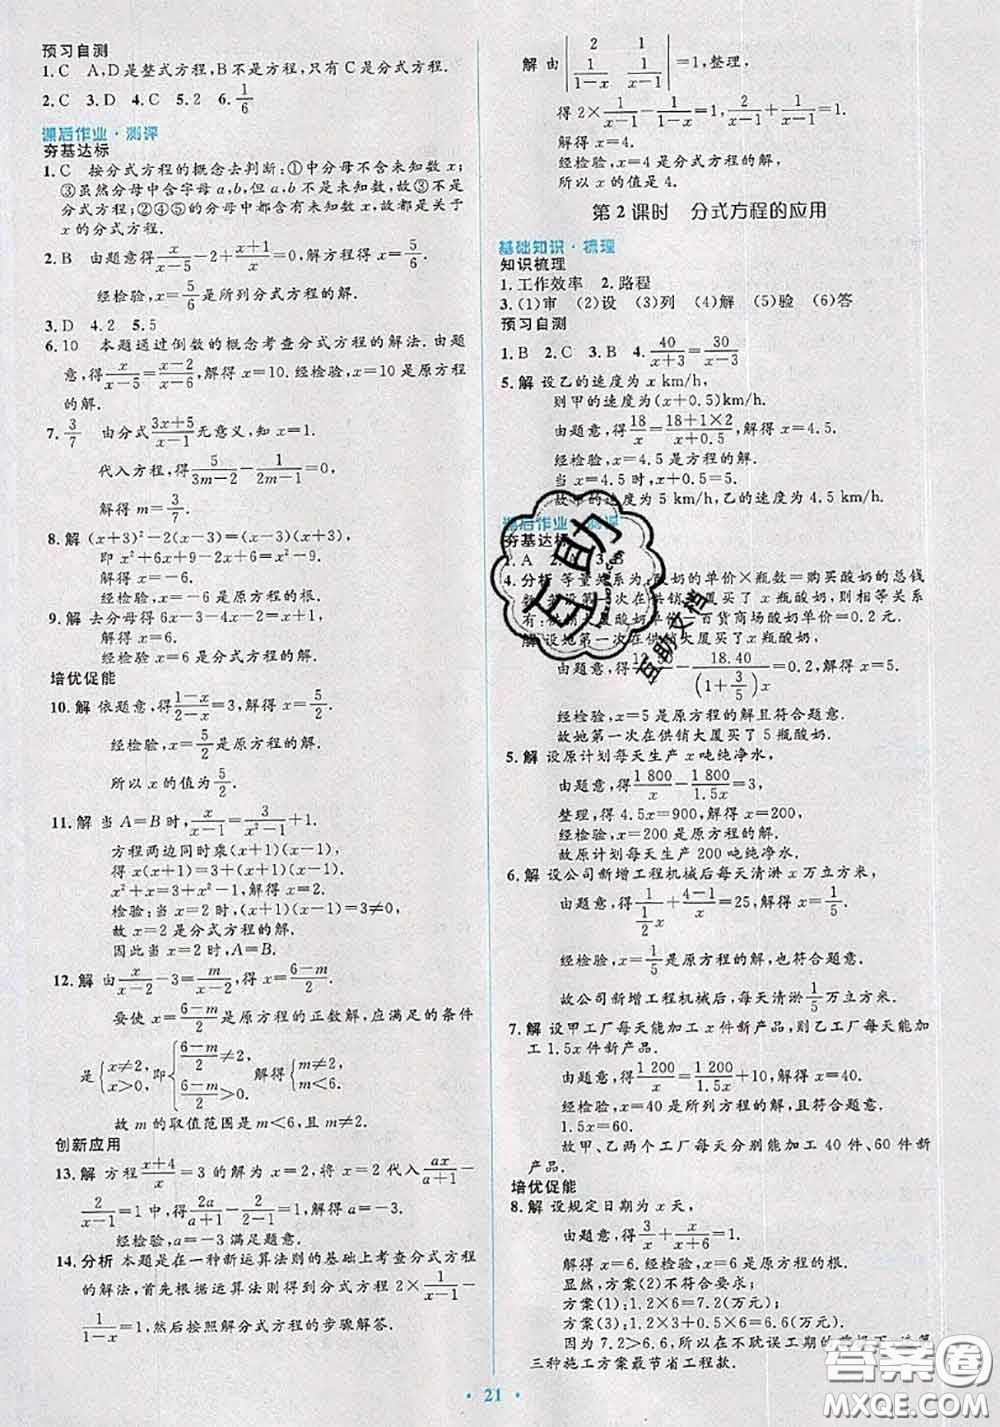 预习自测
1.C A,D是整式方程,B不是方程,只有C是分式方程.
2.C 3.D 4.C 5.2 6.1/6
课后作业·测评
夯基达标
1.C 按分式方程的概念去判断:①中分母不含未知数x;
③虽然分母中含字母a,b,但a,b不是未知数,故③不是
分式方程;②④⑤的分母中都含有未知数,故都是关于
x的分式方程.
2.B 由题意得x/(x-5)-2+(x+1)/x=0,解得x=5/6.
经检验,x=5/6是所列分式方程的解.
3.D 4.2 5.5
6.10 本题通过倒数的概念考查分式方程的解法.由题
意,得x/(x-5)=(x-2)/(x-6),解得x=10.经检验,x=10是原方程
的解.
7.3/7 由分式(3x+5)/(x-1)无意义,知x=1.
代入方程,得5/(3m-2)-1/(2m-1)=0,
解得m=3/7.
8.解 (x+3)²-2(x-3)=(x-3)(x+3),
即x²+6x+9-2x+6=x²-9,
解得x=-6.
经检验,x=-6是原方程的根.
9.解 去分母得6+x(x+3)=x²-9,
解得x=-5.
经检验x=6是分式方程的解.
培优促能
10.解 依题意,得(1-x)/(2-x)=3,解得x=5/2.
经检验,x=5/2是原方程的解.
所以x的值为5/2.
11.解 当A=B时,x/(x-1)=3/(x²-1)+1.
方程两边同时乘(x+1)(x-1),
得x(x+1)=3+(x+1)(x-1).
x²+x=3+x²-1,解得x=2.
检验:当x=2时,(x+1)(x-1)=3≠0,
故x=2是分式方程的解.
因此当x=2时,A=B.
12.解 由x/(x-2)-3=m/(x-2),得x=(6-m)/2.
要使x=(6-m)/2是原方程的正数解,应满足的条件
是{x≠2, x>0,即{(6-m)/2≠2, (6-m)/2>0. 解得{m≠2, m<6.
故m的取值范围是m<6,且m≠2.
创新应用
13.解 方程(x+4)/x=3的解为x=2,把x=2代入ax/(a+1)
-2/(x-1)=1中,得2a/(a+1)-2/(2-1)=1,解得a=-3.
经检验,a=-3满足题意.
14.分析 本题是在一种新运算法则的基础上考查分式方程
的解法,首先根据运算法则得到分式方程2×1/(x-1)
-1/(1-x)=1,然后按照解分式方程的步骤解答.
解 由|2 1; 1/(1-x) 1/(x-1)|=1,整理,
得2×1/(x-1)-1/(1-x)=1,2/(x-1)+1/(x-1)=1,
解得x=4.
经检验,x=4是分式方程的解,
所以x的值是4.
第2课时 分式方程的应用
基础知识·梳理
知识梳理
1.工作效率 2.路程
3.(1)审 (2)设 (3)列 (4)解 (5)验 (6)答
预习自测
1.B 2.C 3.B 4.40/(x+3)=30/(x-3)
5.解 设乙的速度为x km/h,
则甲的速度为(x+0.5)km/h.
由题意,得18/x=(18+1×2)/(x+0.5),解得x=4.5.
经检验,x=4.5是方程的解.
当x=4.5时,x+0.5=5.
故甲的速度为5 km/h,乙的速度为4.5 km/h.
课后作业·测评
夯基达标
1.A 3.B
4.分析 等量关系为:酸奶的单价×瓶数=购买酸奶的总钱
第一次在供销大厦买了x瓶酸奶,则相等关系
有:供销大厦酸奶单价-百货商场酸奶单价=0.2元.
解 设她第一次在供销大厦买了x瓶酸奶.
由题意,得 18.40/((1+3/5)x)=0.2,解得x=5.
经检验,x=5是原方程的解且符合题意.
故她第一次在供销大厦买了5瓶酸奶.
5.解 设原计划每天生产x吨纯净水,
由题意,得1 800/x-1 800/1.5x=3,
整理,得4.5x=900,解得x=200.
经检验,x=200是原方程的解.
故原计划每天生产200吨纯净水.
6.解 设公司新增工程机械后每天清淤x万立方米,
由题意,得1/(1/2 x)+(4-1)/x=25,解得x=1/5.
经检验,x=1/5是原方程的解,且符合题意.
故公司新增工程机械后,每天清淤1/5万立方米.
7.解 设甲工厂每天能加工x件新产品,则乙工厂每天能加
工1.5x件新产品.
由题意,得1 200/x=1 200/1.5x+10,解得x=40.
经检验,x=40是所列方程的解,且符合题意.
1.5x=60.
故甲、乙两个工厂每天分别能加工40件、60件新
产品.
培优促能
8.解 设规定日期为x天,
由题意,得3/x+x/(x+6)=1.
解得x=6.经检验,x=6是原方程的根.
显然,方案(2)不符合要求;
方案(1):1.2×6=7.2(万元);
方案(3):1.2×3+0.5×6=6.6(万元).
因为7.2>6.6,所以在不耽误工期的前提下,选第
三种施工方案最节省工程款.
·21·
互助
互助文档
答案圈
MXQE.COM